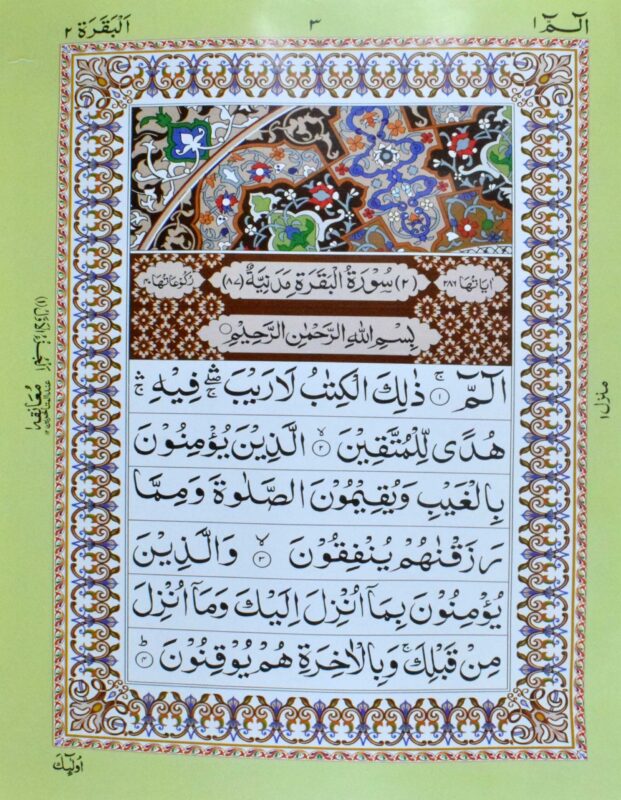 الٓمّٓ ١
٣
اَلْبَقَرَة ٢
اٰيَاتُهَا ٢٨٦
(٢) سُوْرَةُ الْبَقَرَةِ مَدَنِيَّةٌ (٨٧)
رُكُوْعَاتُهَا ٤٠
بِسْمِ اللّٰهِ الرَّحْمٰنِ الرَّحِيْمِ
الٓمّٓ ۚ ١ ذٰلِكَ الْكِتٰبُ لَا رَيْبَ ۛۖ ۚ فِيْهِ ۛۚ
هُدًى لِّلْمُتَّقِيْنَ ۙ ٢ الَّذِيْنَ يُؤْمِنُوْنَ
بِالْغَيْبِ وَيُقِيْمُوْنَ الصَّلٰوةَ وَمِمَّا
رَزَقْنٰهُمْ يُنْفِقُوْنَ ۙ ٣ وَالَّذِيْنَ
يُؤْمِنُوْنَ بِمَآ اُنْزِلَ اِلَيْكَ وَمَآ اُنْزِلَ
مِنْ قَبْلِكَ ۚ وَبِالْاٰخِرَةِ هُمْ يُوْقِنُوْنَ ؕ ٤
منزل ١
معانقة ١
اُولٰٓئِكَ